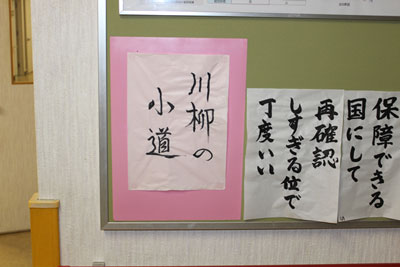 川柳の
小道
保障できる
国にして
再確認
しすぎる位で
丁度いい